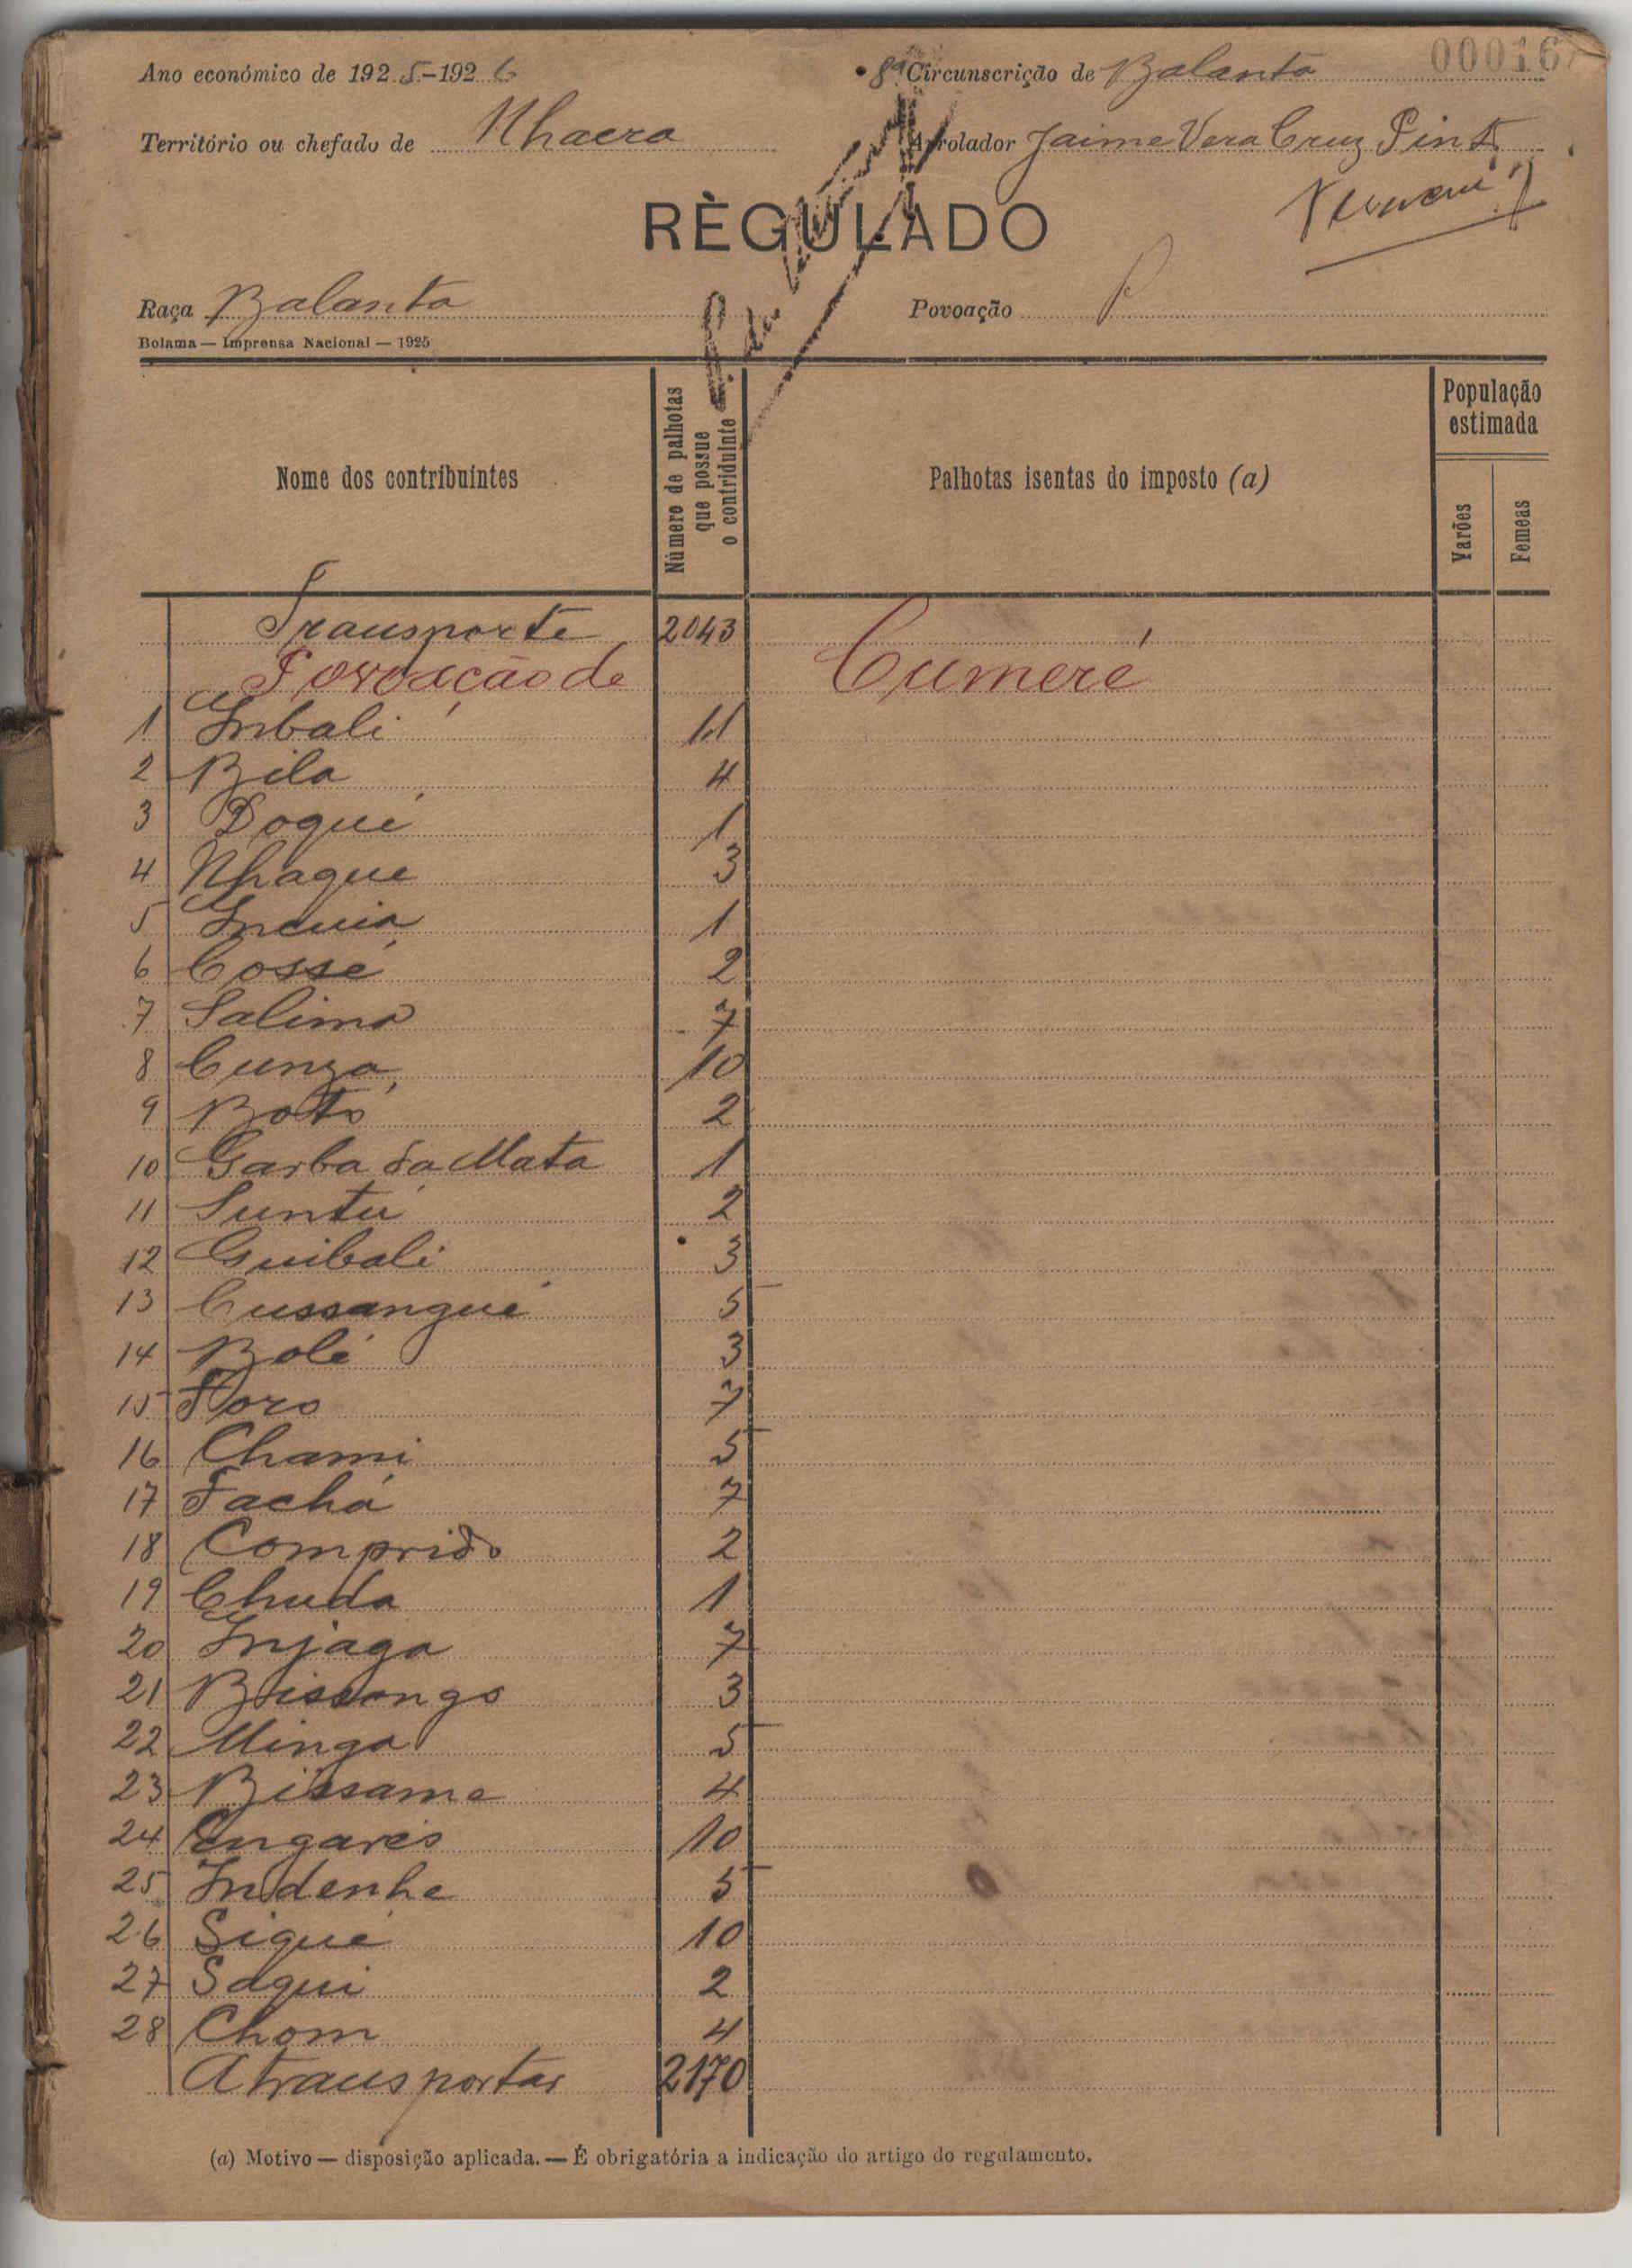 00016
Ano económico de 1925-1926
8ª Circunscrição de Balanta
Território ou chefado de Nhacra
Arrolador Jaime Vera Cruz Pinto
RÈGULADO
Raça Balanta
Povoação
Bolama — Imprensa Nacional — 1925
Nome dos contribuintes
Número de palhotas que possue o contriduinte
Palhotas isentas do imposto (a)
População estimada
Varões
Femeas
Transporte 2043
Povoação de Cumeré
1 Inbali 11
2 Bila 4
3 Doqué 1
4 Nhague 3
5 Incuia 1
6 Cossé 2
7 Salima 7
8 Cunga 10
9 Botó 2
10 Garba da Mata 1
11 Suntú 2
12 Guibali 3
13 Cussangué 5
14 Bolé 3
15 Foro 7
16 Chami 5
17 Fachá 7
18 Comprido 2
19 Chuda 1
20 Injaga 7
21 Bissongo 3
22 Minga 5
23 Bissame 4
24 10
25 Indenhe 5
26 Sigué 10
27 Sagui 2
28 Chom 4
A transportar 2170
(a) Motivo — disposição aplicada. — É obrigatória a indicação do artigo do regulamento.